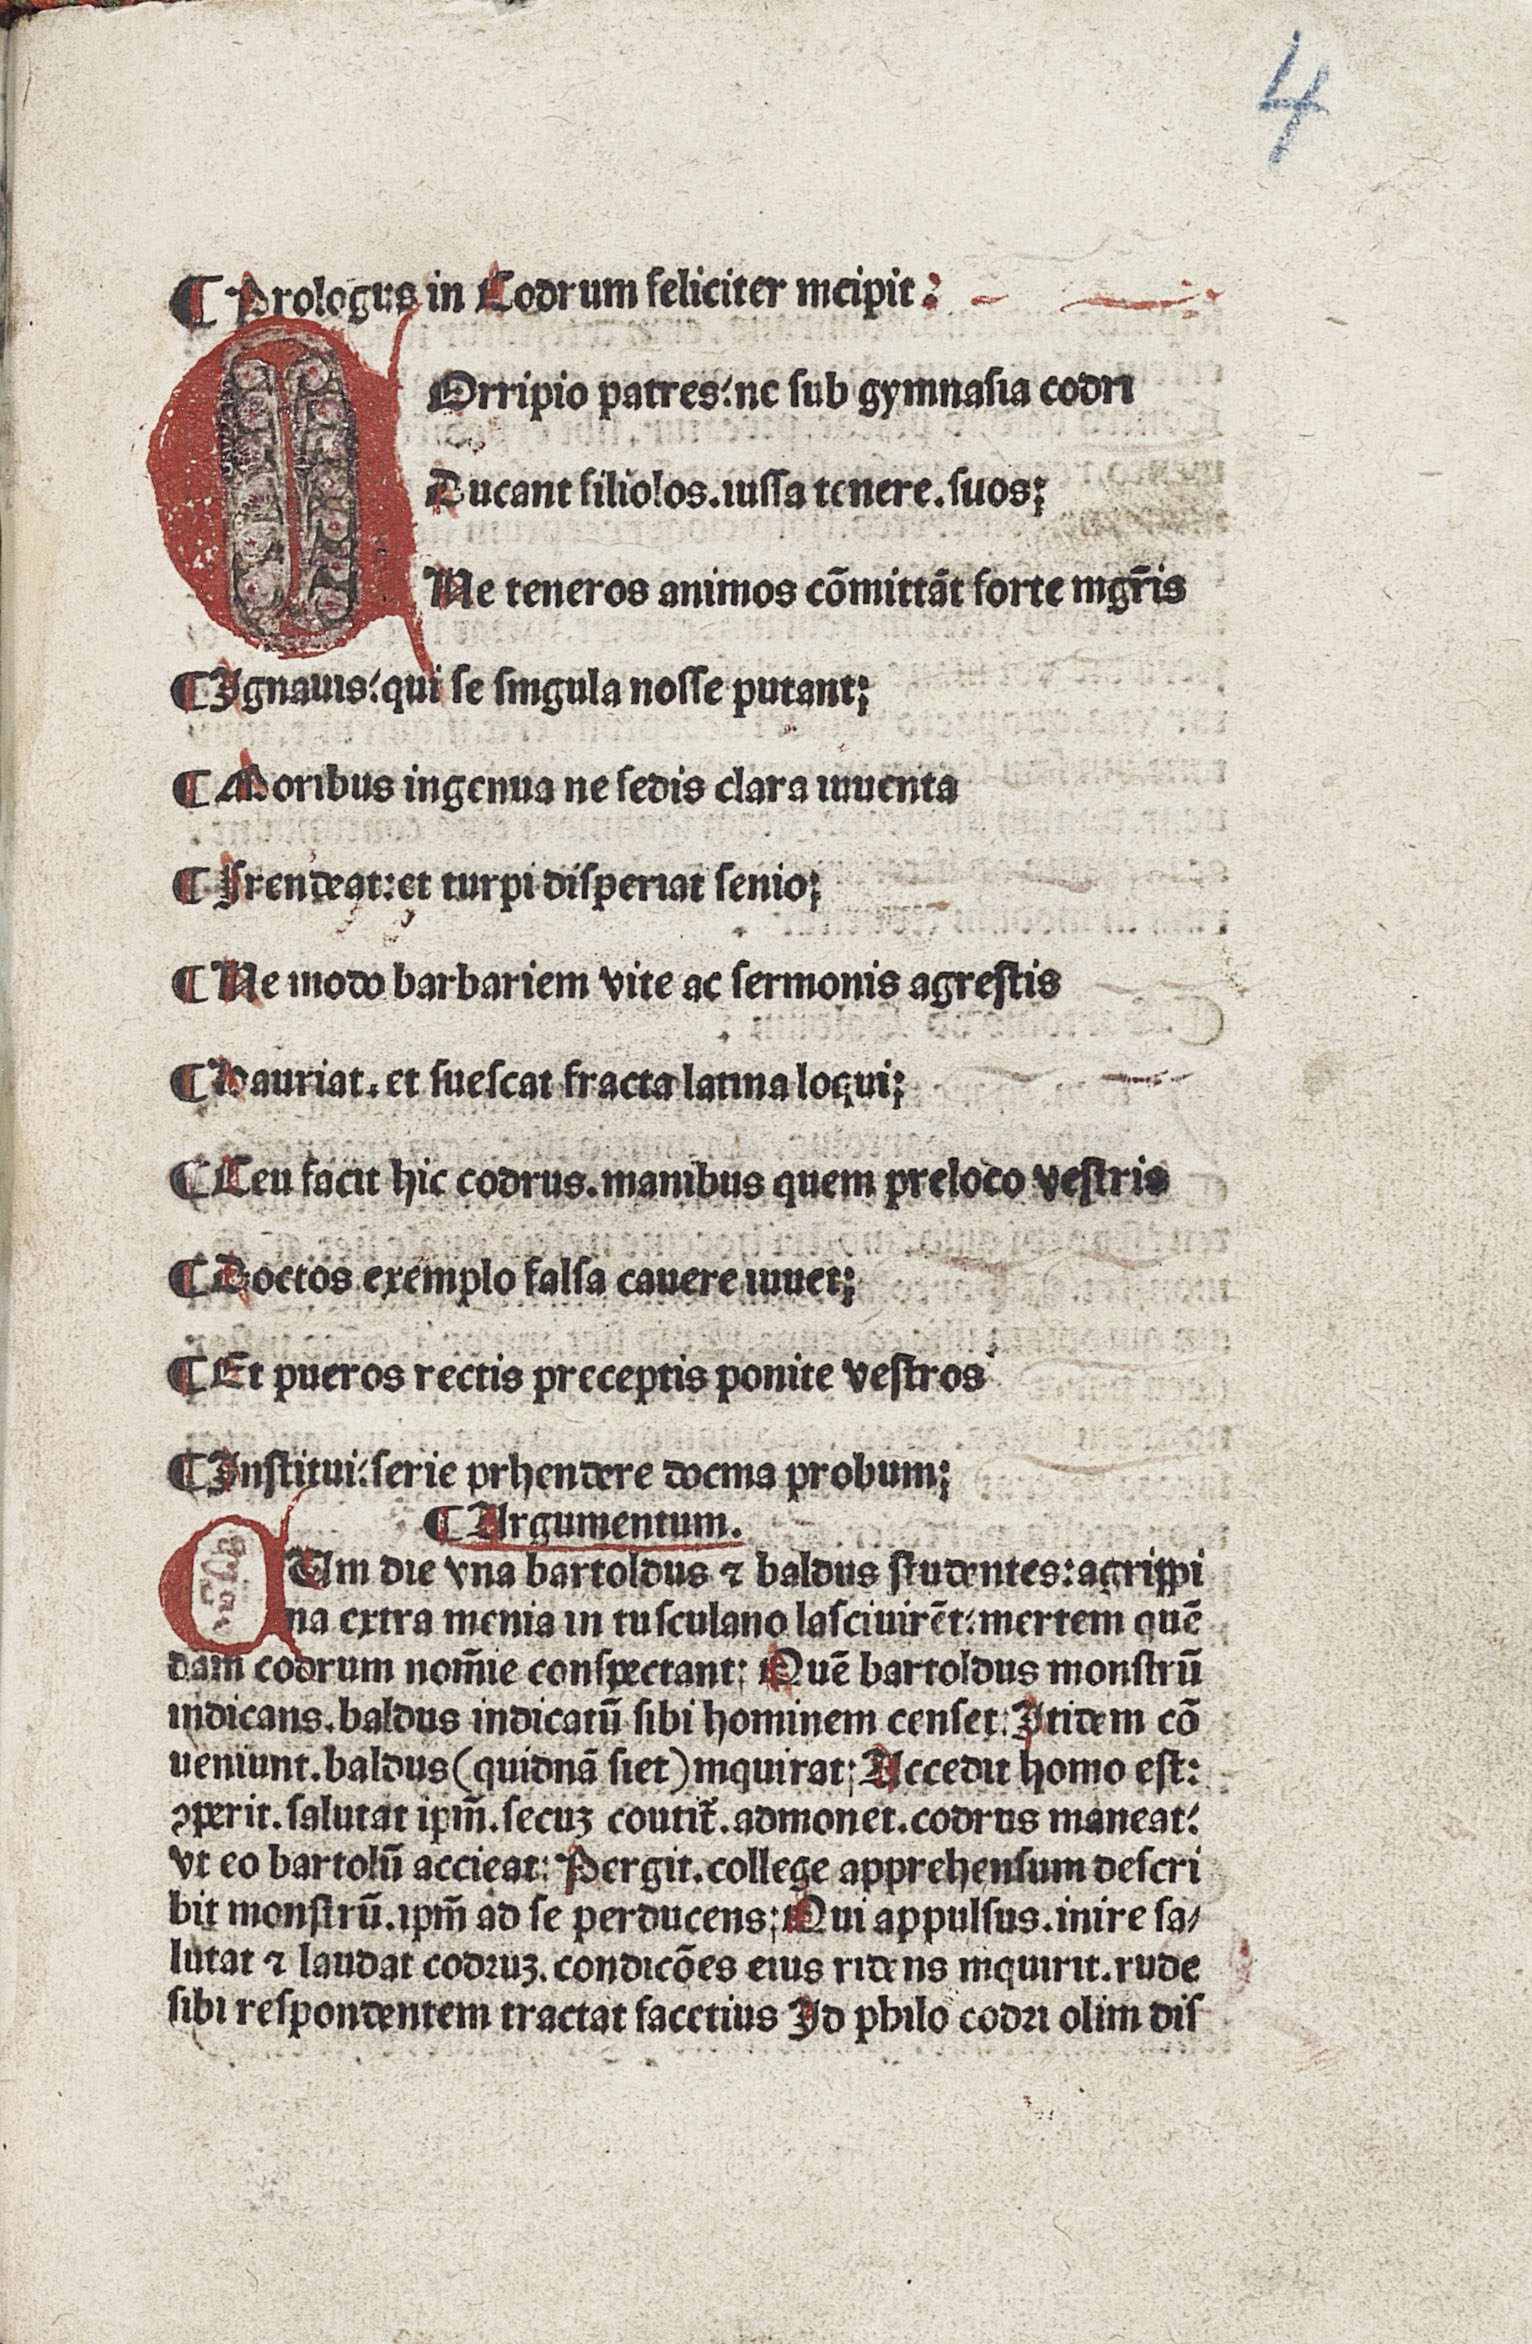 4
¶ Prologus in Codrum feliciter incipit:
COrripio patres:nc sub gymnasia codri
Ducant filiolos.iussa tenere.suos;
Ne teneros animos cōmittāt forte mgr̄is
¶ Ignauis:qui se singula nosse putant;
¶ Moribus ingenua ne fedis clara iuuenta
¶ Frendeat:et turpi disperiat senio;
¶ Ne modo barbariem vite ac sermonis agrestis
¶ Hauriat.et suescat fracta latina loqui;
¶ Ceu facit hic codrus.manibus quem preloco vestris
¶ Doctos exemplo falsa cauere iuuet;
¶ Et pueros rectis preceptis ponite vestros
¶ Institui:serie prhendere docma probum;
¶ Argumentum.
CUm die vna bartoldus ⁊ baldus studentes:agrippi
na extra menia in tusculano lasciuirēt:inertem quē
dam codrum nom̄ie conspectant; Quē bartoldus monstrū
indicans.baldus indicatū sibi hominem censet;Itidem cō
ueniunt.baldus(quidnā siet)inquirat;Accedit homo est:
ꝯperit.salutat ipm̄.secuꝫ coutit̄.admonet.codrus maneat:
vt eo bartolū accieat;Pergit.college apprehensum descri
bit monstrū.ipm̄ ad se perducens;Qui appulsus.inire sa/
lutat ⁊ laudat codruꝫ.condicōes eius ridens inquirit.rude
sibi respondentem tractat facetius Id philo codri olim dis